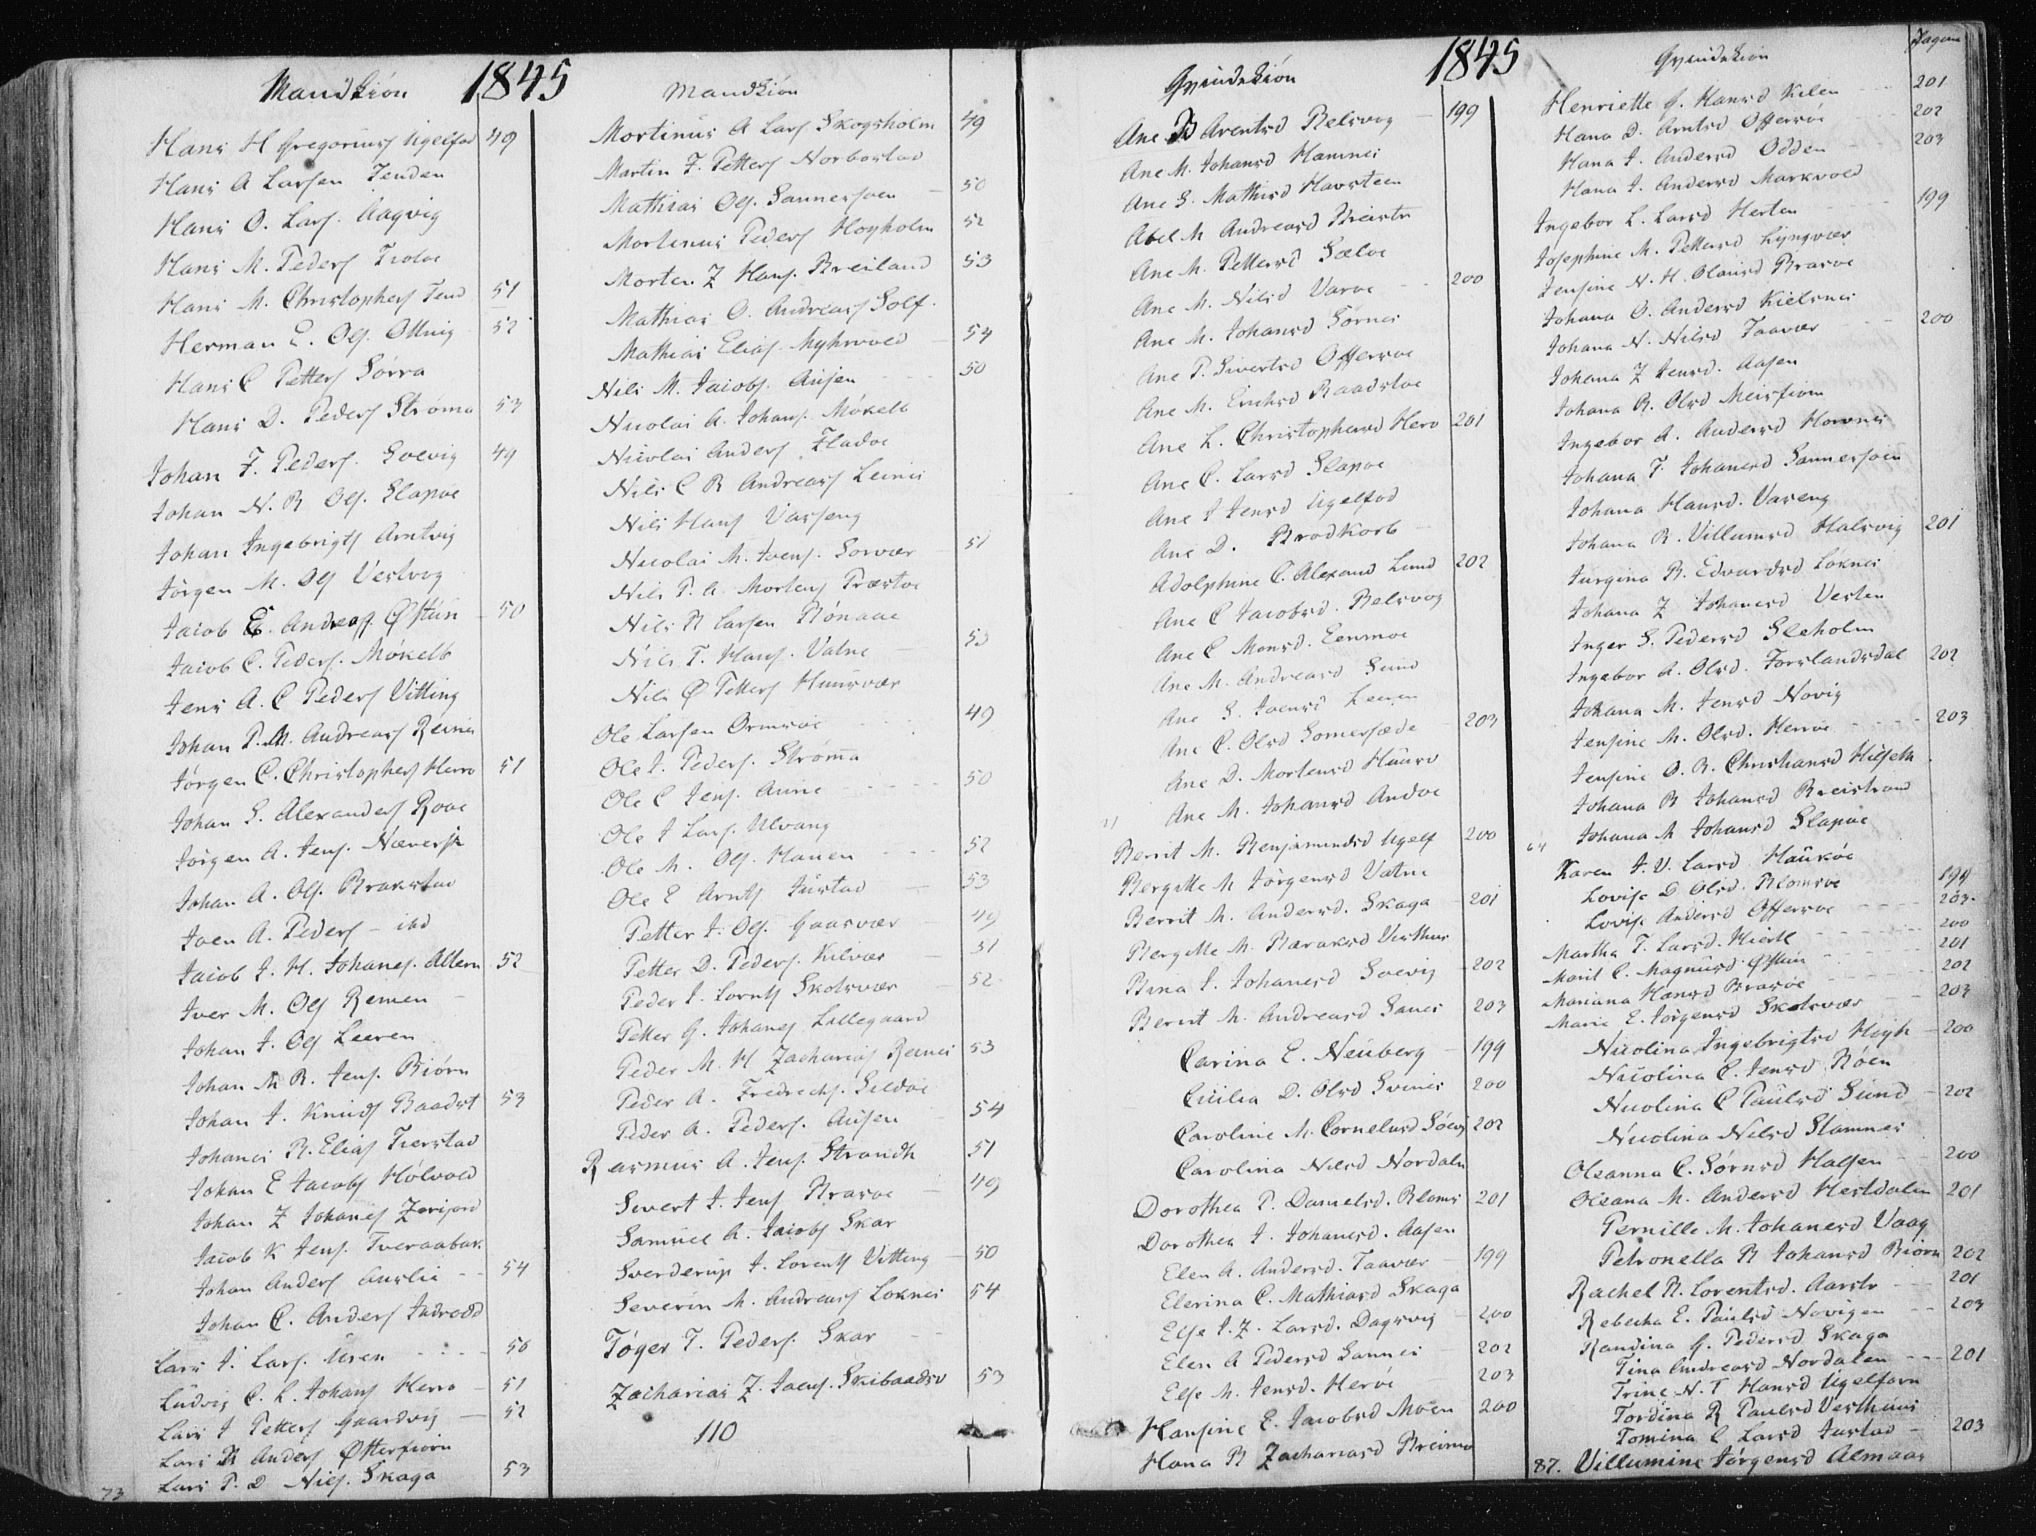 Mandkión 1845
Hans H Gregoriusf Ugelfod 49
Hans A Larsen Tenden
Hans O. Larf. Aagvig
Hans M. Pedersf Troløe
Hans M. Christophersf Tend 51
Herman E. Olsf. Olluig 52
Hans C Pettersf Sórra
Hans D. Pedersf Stróma 53
Johan F. Pedersf. Solvig 49
Johan N. B Olsf. Slapóe
Johan Ingebrigtsf Arntvig
Jørgen M. Olsf Vestvog
Jacob E. Andreasf. Østun 50
Jacob C. Pedersf. Mókelb
Jens A. C Pedersf Vitting
Johan P. M. Andreasf Reines
Jórgen C. Christophersf Herro 51
Johan S. Alexandersf Roae
Jórgen A. Jensf. Næversk
Johan A. Olsf. Brakstad
Joen A. Pedersf - ibd
Jacob J. H. Johanesf. Altern 52
Iver M. Olsf Remen
Johan J. Olsf Leeren
Johan M B. Jensf. Biórn
Johan J. Knudsf Baadst 53
Johanes B. Eliasf Tverstad
Johan E Jacobsf Hólvold
Johan Z Johanesf Zerifjord
Jacob K Jensf. Tveraabak
Johan Andersf Aurlie 54
Johan C. Andersf Indredd
Lars J. Larsf. Uren 50
Ludvig C. L. Johansf Herro 51
Lars J Pettersf Gaardvig 52
Lars B Andersf Ótterfiorn
Lars P. D Nilsf. Skaga 53
73
Mandkión
Mortinus A Larsf Skogsholm 49
Martin F. Pettersf Norbostad
Mathias Olsf. Sannersoen 50
Mortinus Pedersf Hoyholm 52
Morten Z Hansf. Breiland 53
Mathias O. Andreasf Solf.
Mathias Eliasf. Myhrvold 54
Nils M. Jacobsf. Ausen 50
Nicolai A. Johansf. Mókelb
Nicolai Andersf. Fladóe
Nils C B Andreasf Leines
Nils Hansf Varseng
Nicolai M. Joensf. Sorvær 51
Nils P. A. Mortensf Præstøe
Nils N Larsen Rónaae
Nils T. Hansf. Valne 53
Nils Ø Pettersf Huusvær
Ole Larsen Ormsóe 49
Ole J. Pedersf. Stróma
Ole C Jensf. Aune 50
Ole J Larsf. Ulvang
Ole M. Olsf. Hanen 52
Ole E Arntsf Justad 53
Petter J. Olsf. Gaasvær 49
Petter D. Pedersf. Kilvær 51
Peder J. Lorntsf Skotsvær 52
Petter G. Johanesf Lillegaard
Peder M. H Zachariasf Reines 53
Peder A. Fredrechsf. Sildóe
Peder A. Pedersf. Ausen 54
Rasmus A. Jensf. Strandh 51
Sivert J. Jensf Brasóe 49
Samuel A. Jacobsf Skar
Sverderup J. Lorentsf Vitting 50
Severin M. Andreasf Loknes 54
Tóger T. Pedersf. Skar
Zacharias Z. Joensf. Skibaadsv 53
110
Qvindekión 1845
Ane B Arentsd Belsvog 199
Ane M. Johansd Hamnes
Ane S. Mathisd Havsteen
Abel M Andreasd Breistr
Ane M. Pettersd Sælóe
Ane M. Nilsd Varóe 200
Ane M. Johansd Sórnes
Ane P. Sivertsd Offersóe
Ane M. Erichsd Raadstóe
Ane L. Christophersd Hero 201
Ane C. Larsd Slapóe
Ane J Jensd Ugelfod
Ane D. Brodkorb
Adolphine C. Alexand Lund 202
Ane C Jacobsd. Belsvog
Ane C Monsd. Eenmoe
Ane M. Andreasd Sund
Ane S. Joensd Leeren
Ane C. Olsd Somersæde 203
Ane D. Mortensd Huusv
Ane M. Johansd Andóe
Berit M. Benjaminsd Ugelf 200
Bergitte M Jórgensd Valne
Berrit M. Andersd. Skaga 201
Bergitte M. Baraksd Vesthus
Bina J. Johanesd Soevig 202
Bernt M. Andreasd Sanes 203
Carina E. Neuberg 199
Cicilia D. Olsd Svines 200
Caroline M. Cornelusd Sóevg 202
Carolina Nilsd Nordaln
Dorothea P. Danielsd. Bloms 201
Dorothea J. Johanesd. Aasen
Elen A. Andersd. Taavær 199
Elerina C. Mathiasd Skaga
Else J. Z. Larsd. Dagsvig 200
Elen A Pedersd Sannes 202
Else M. Jensd. Heróe 203
Hansine E. Jacobsd Moen 200
Hana B Zachariasd Breivne
Qvindekión Pagina
Henriette G. Hansd Kilen 201
Hana D. Arntsd Offersóe 202
Hana J. Andersd Odden 203
Hana J. Andersd Markvold
Ingebor L. Larsd Herten 199
Josephine M. Pettersd Lyngvær
Jensine N. H. Olausd Brasóe
Johana O. Andersd Kielsnes
Johana N. Nilsd Taavær 200
Johana Z Jensd. Aasen
Johana B. Olsd Meisfiorn
Ingebor A. Andersd Hovnes
Johana T. Johanesd Sannersoen
Johana Hansd. Vareng
Johana B. Villumsd Halsvig 201
Jurgina B. Edvardsd Lóknes
Johana Z Johanesd Vesten
Inger S. Pedersd Sleholm
Ingebor A. Olsd. Forslandsdal 202
Johana M. Jensd Novig
Jensine M. Olsd. Herróe 203
Jensine O. B. Christiansd Hilseth
Johana B Johansd Breistrand
Johana M Johansd Slapóe
64
Karen J. V. Larsd Haukóe
Lovise D Olsd. Blomsóe 199
Lovise Andersd Offersóe 203.
Martha T. Larsd. Hiertl 200
Marit C. Magnusd Østun 201
Mariana Hansd Brasóe 202
Marie E. Jórgensd Skotsvær 203
Nicolina Ingebrigtsd High 200
Nicolina C. Jensd Róen
Nicolina C Paulsd Sund 202
Nicolina Nilsd Stamnes
Oleanna C. Sórnsd Halsen 200
Oleana M. Andersd Hestdalen 201
Pernille M. Johanesd Vaag
Petronella B Johansd Biórn 202
Rachel N. Lorentsd. Aarstr 201
Rebecha E. Paulsd Novigen 203
Randina G. Pedersd Skaga
Tina Andreasd Nordalen 201
Trine N. T Hansd Ugelforn
Tordina B Paulsd Vesthuus
Tomina C Larsd Justad 203
87. Villumine Jórgensd Almaas